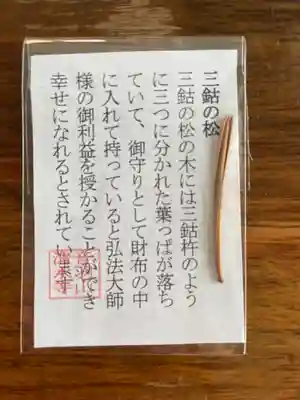 三鈷の松
三鈷の松の木には三鈷杵のよう
に三つに分かれた葉っぱが落ち
ていて、御守りとして財布の中
に入れて持っていると弘法大師
様の御利益を授かることができ
幸せになれるとされてい